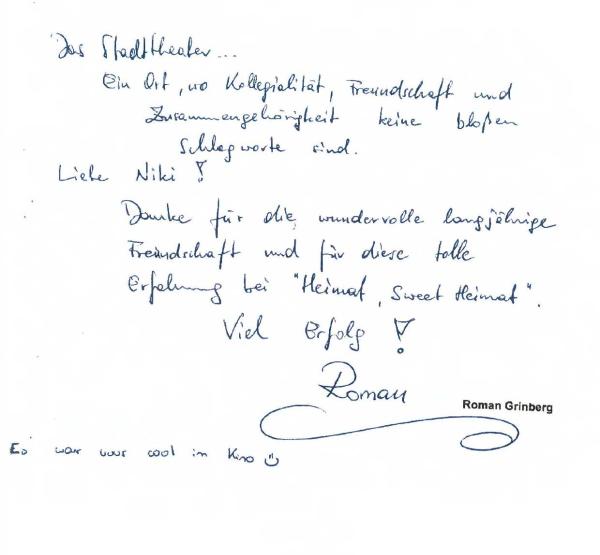 Das Stadttheater...
Ein Ort, wo Kollegialität, Freundschaft und
Zusammengehörigkeit keine bloßen
Schlagworte sind.
Liebe Niki !
Danke für die wundervolle langjährige
Freundschaft und für diese tolle
Erfahrung bei "Heimat, Sweet Heimat".
Viel Erfolg !
Roman
Roman Grinberg
Es war cool im Kino ☺